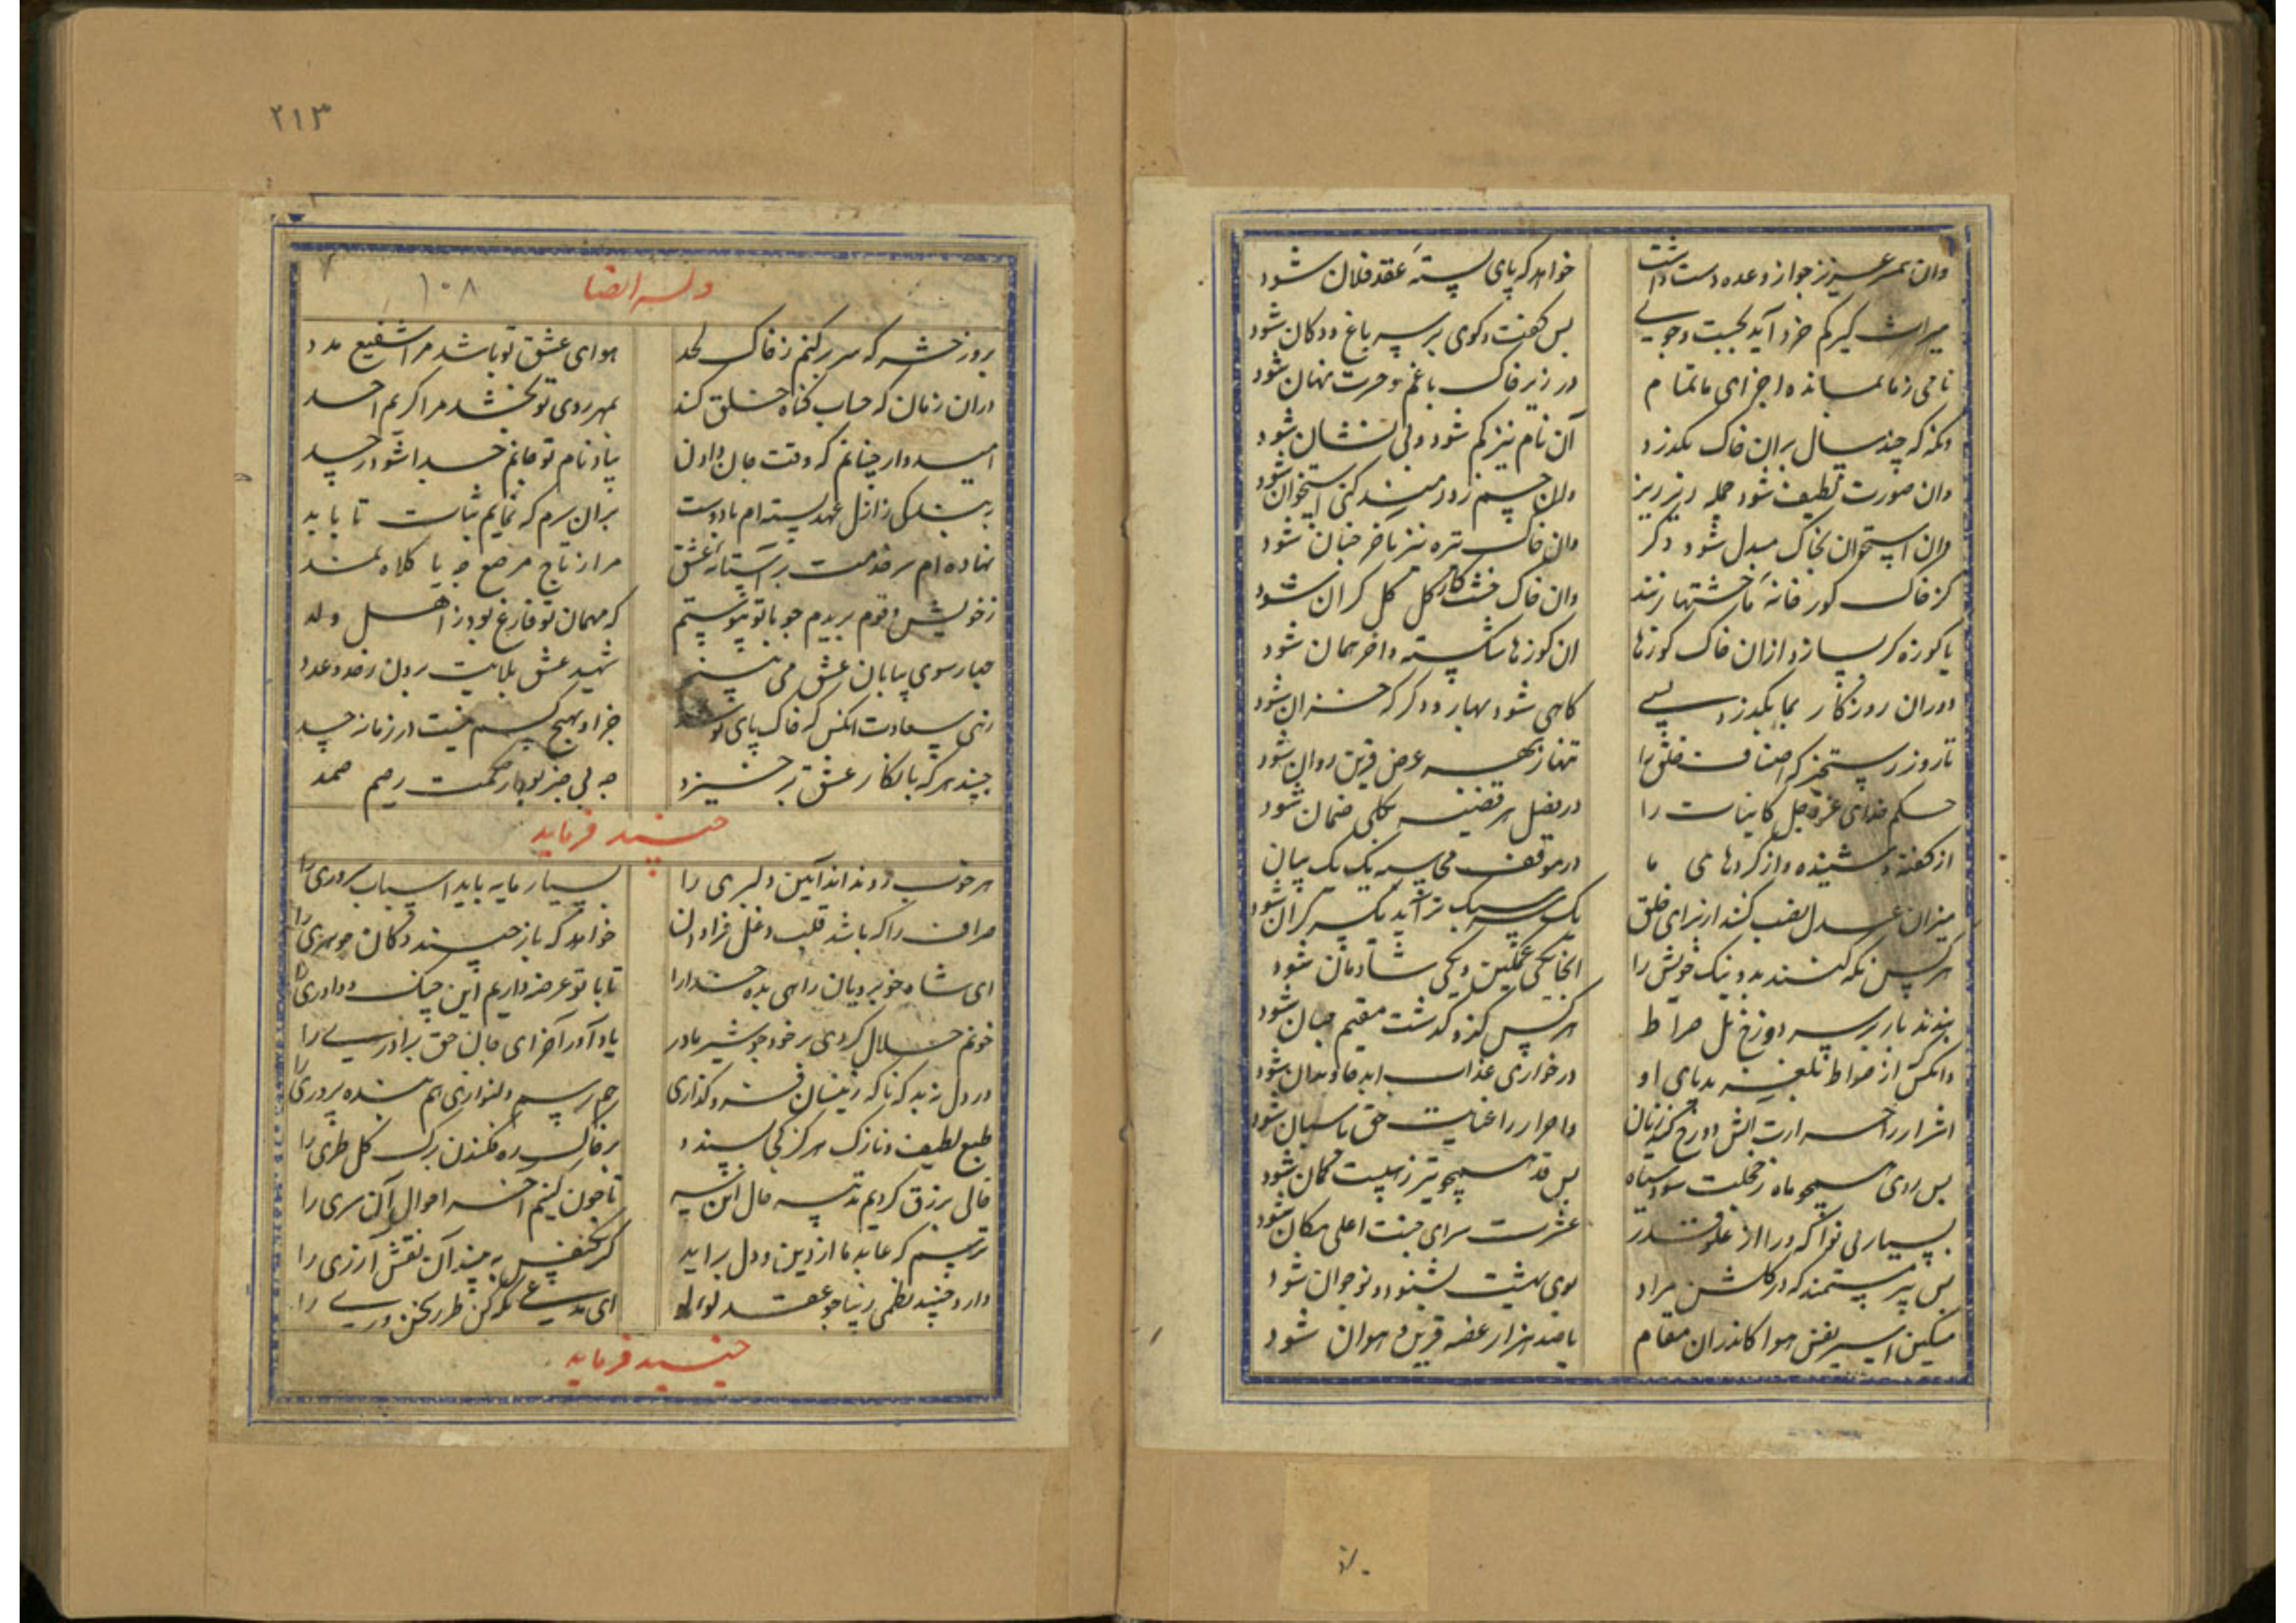 وان همسر عزیز جو از وعده دست داشت خواهد که پای بستهٔ عقد فلان شود
میراث گیر کم خرد آید بجست وجوی بس گفت وکوی بر سر باغ ودکان شود
نامی ز ما بماند واجزای ما تمام در زیر خاک باغم وحسرت نهان شود
وانگه که چند سال بران خاک بگذرد آن نام نیز گم شود وبی نشان شود
وان صورت لطیف شود جمله زیر زیر وان جسم زورمند کفی استخوان شود
وان استخوان بخاک مبدل شود دگر وان خاک تیره نیز باخر چنان شود
کز خاک گور خانهٔ ما خشتها زنند وان خاک خشت کارگل گل گران شود
یا کوزه گر بسازد ازان خاک کوزها ان کوزها شکسته واخر همان شود
دوران روزکار بما بگذرد بسی کاهی شود بهار ودکر که خزان شود
تا روز رستخیز که اصناف خلق را تنها ز بهر عرض قرین روان شود
حکم خدای عز وجل کاینات را در فصل هر قضیه بکلی ضمان شود
از گفته وشنیده واز کردهای ما در موقف محاسبه یک یک بیان
میزان عدل نصب کنند از برای خلق یک سر سبک بر آید یک سر گران شود
هر کس نکه کند بد ونیک خویش را انجا یکی غمگین ویکی شادمان شود
بندند باز بر سر دوزخ پل صراط هر کس کزو گذشت مقیم جنان شود
وانکس از صراط بلغزید پای او در خواری عذاب ابد جاودان شود
اشرار را حرارت اتش دوزخ کند زبان واحرار را عنایت حق پاسبان شود
بس روی همچو ماه ز خجلت شود سیاه بس قد همچو تیر ز هیبت کمان شود
بسیار بی نوا که ورا از علو قدر عشرت سرای جنت اعلی مکان شود
بس پیر مستمند که در گلشن مراد بوی بهشت بشنود ونوجوان شود
مسکین اسیر نفس هوا کاندران مقام با صد هزار غصه قرین هوان شود
۲۱۳
وله ایضا
۱۰۸
بروز حشر که سر بر کنم ز خاک لحد هوای عشق تو باشد مرا شفیع مدد
دران زمان که حساب گناه خلق کند بمهر روی تو بخشد مرا کریم احد
امیدوار چنانم که وقت جان دادن بیاد نام تو جانم جدا شود ز جسد
به بندگی ز ازل عهد بسته ام با دوست بران سرم که نمایم ثبات تا باید
نهاده ام سر خدمت بر آستانهٔ عشق مرا ز تاج مرصع چه یا کلاه نمد
ز خویش وقوم بریدم جو با تو پیوستم که مهمان تو فارغ بود ز اهل وولد
چهار سوی بیابان عشق می بینم شهید عشق بلایت برون ز حد وعدد
زهی سعادت انکس که خاک پای تو شد جز او بهیچ کسم نیست در زمانه حسد
جنید هر که بانکار عشق بر خیزد چه بی خبر بود از حکمت رحیم صمد
جنید فرماید
هر خوب رو نداند آیین دلبری را بسیار مایه باید اسباب سروری را
صراف را که باشد قلب ودغل فراوان خواهد که باز چیند دکان جوهری را
ای شاه خوبرویان راهی بده خدارا تا با تو عرضه داریم این جنک وداوری را
خونم حلال کردی بر خود جو شیر مادر یاد آور آخر ای جان حق برادری را
درد دل ندید که ناگه زینسان فرو گذاری رحم ورسم دلنوازی هم بنده پروری را
طبع لطیف ونازک هرکز کجا پسندد بر خاک ره فکندن برک گل طری را
حالی برزق کردیم تدبیر حال این سر تا چون کنیم آخر احوال آن سری را
ترسم که عابد ما از دین ودل براید گر یکنفس به بیند آن نقش آزری را
دارد جنید نظمی زیبا جو عقد لولو ای مدعی نکه کن طرز سخن وری را
جنید فرماید